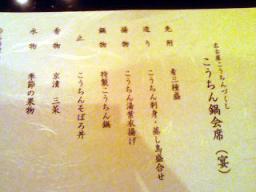 名古屋こうちんづくし
こうちん鍋会席(宴)
先附 肴三種盛
造り こうちん刺身・蒸し鳥盛合せ
揚物 こうちん湯葉衣揚げ
鍋物 特製こうちん鍋
止 こうちんそぼろ丼
香物 京漬三菜
水物 季節の果物